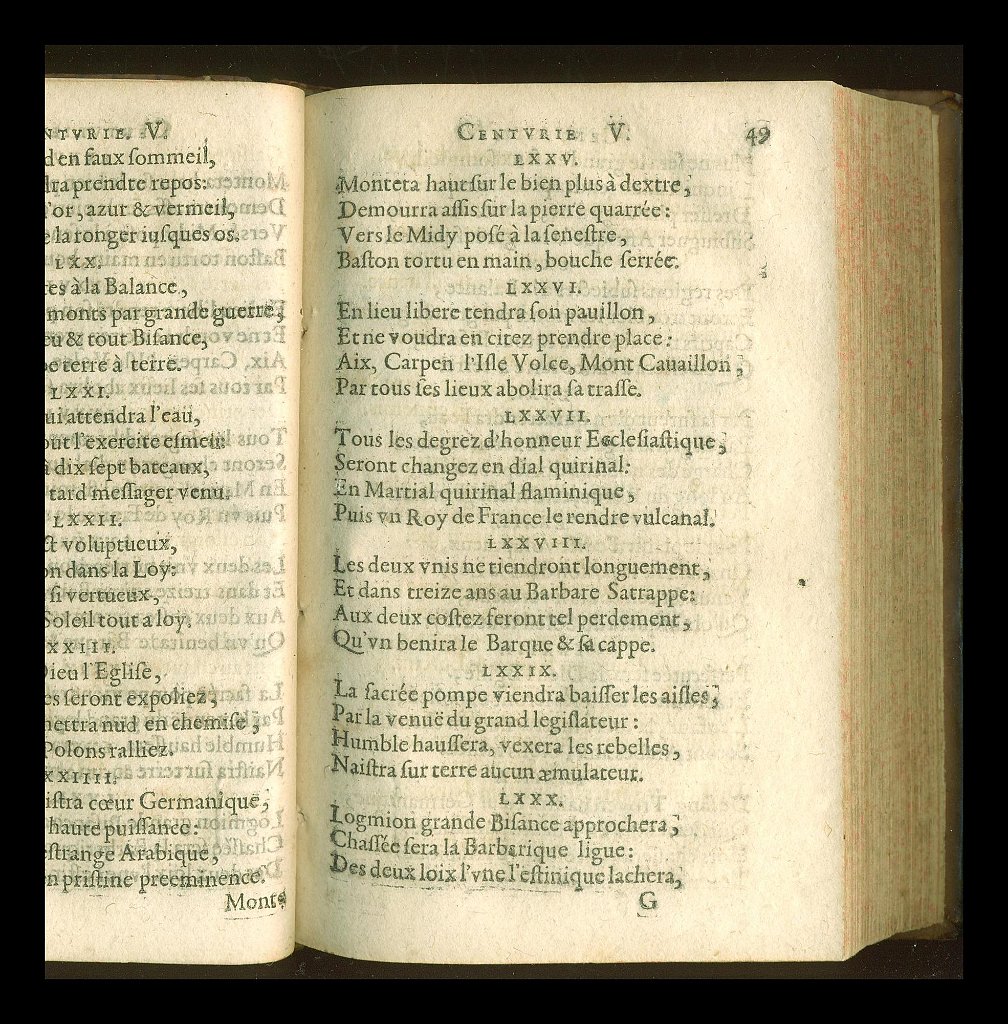 NTVRIE. V.
d en faux ſommeil,
dra prendre repos:
'or, azur & vermeil,
e la ronger iuſques os.
LXX.
res à la Balance,
monts par grande guerre,
eu & tout Biſance,
be terre à terre.
LXXI.
ui attendra l'eau,
out l'exercite eſmeu:
dix ſept bateaux,
tard meſſager venu.
LXXII.
ct voluptueux,
on dans la Loy:
ſi vertueux,
Soleil tout a loy.
XXIII.
Dieu l'Egliſe,
es ſeront expoliez,
mettra nud en chemiſe,
Polons ralliez.
XXIIII.
iſtra cœur Germanique,
haute puiſſance:
eſtrange Arabique,
n priſtine preeminence.
Monte
CENTVRIE V. 49
LXXV.
Montera haut ſur le bien plus à dextre,
Demourra aſſis ſur la pierre quarrée:
Vers le Midy poſé à la ſeneſtre,
Baſton tortu en main, bouche ſerrée.
LXXVI.
En lieu libere tendra ſon pauillon,
Et ne voudra en citez prendre place:
Aix, Carpen l'Iſle Volce, Mont Cauaillon,
Par tous ſes lieux abolira ſa traſſe.
LXXVII.
Tous les degrez d'honneur Eccleſiaſtique,
Seront changez en dial quirinal:
En Martial quirinal flaminique,
Puis vn Roy de France le rendre vulcanal.
LXXVIII.
Les deux vnis ne tiendront longuement,
Et dans treize ans au Barbare Satrappe:
Aux deux coſtez feront tel perdement,
Qu'vn benira le Barque & ſa cappe.
LXXIX.
La ſacrée pompe viendra baiſſer les aiſles,
Par la venuë du grand legiſlateur:
Humble hauſſera, vexera les rebelles,
Naiſtra ſur terre aucun æmulateur.
LXXX.
Logmion grande Biſance approchera,
Chaſſée ſera la Barbarique ligue:
Des deux loix l'vne l'eſtinique lachera,
G